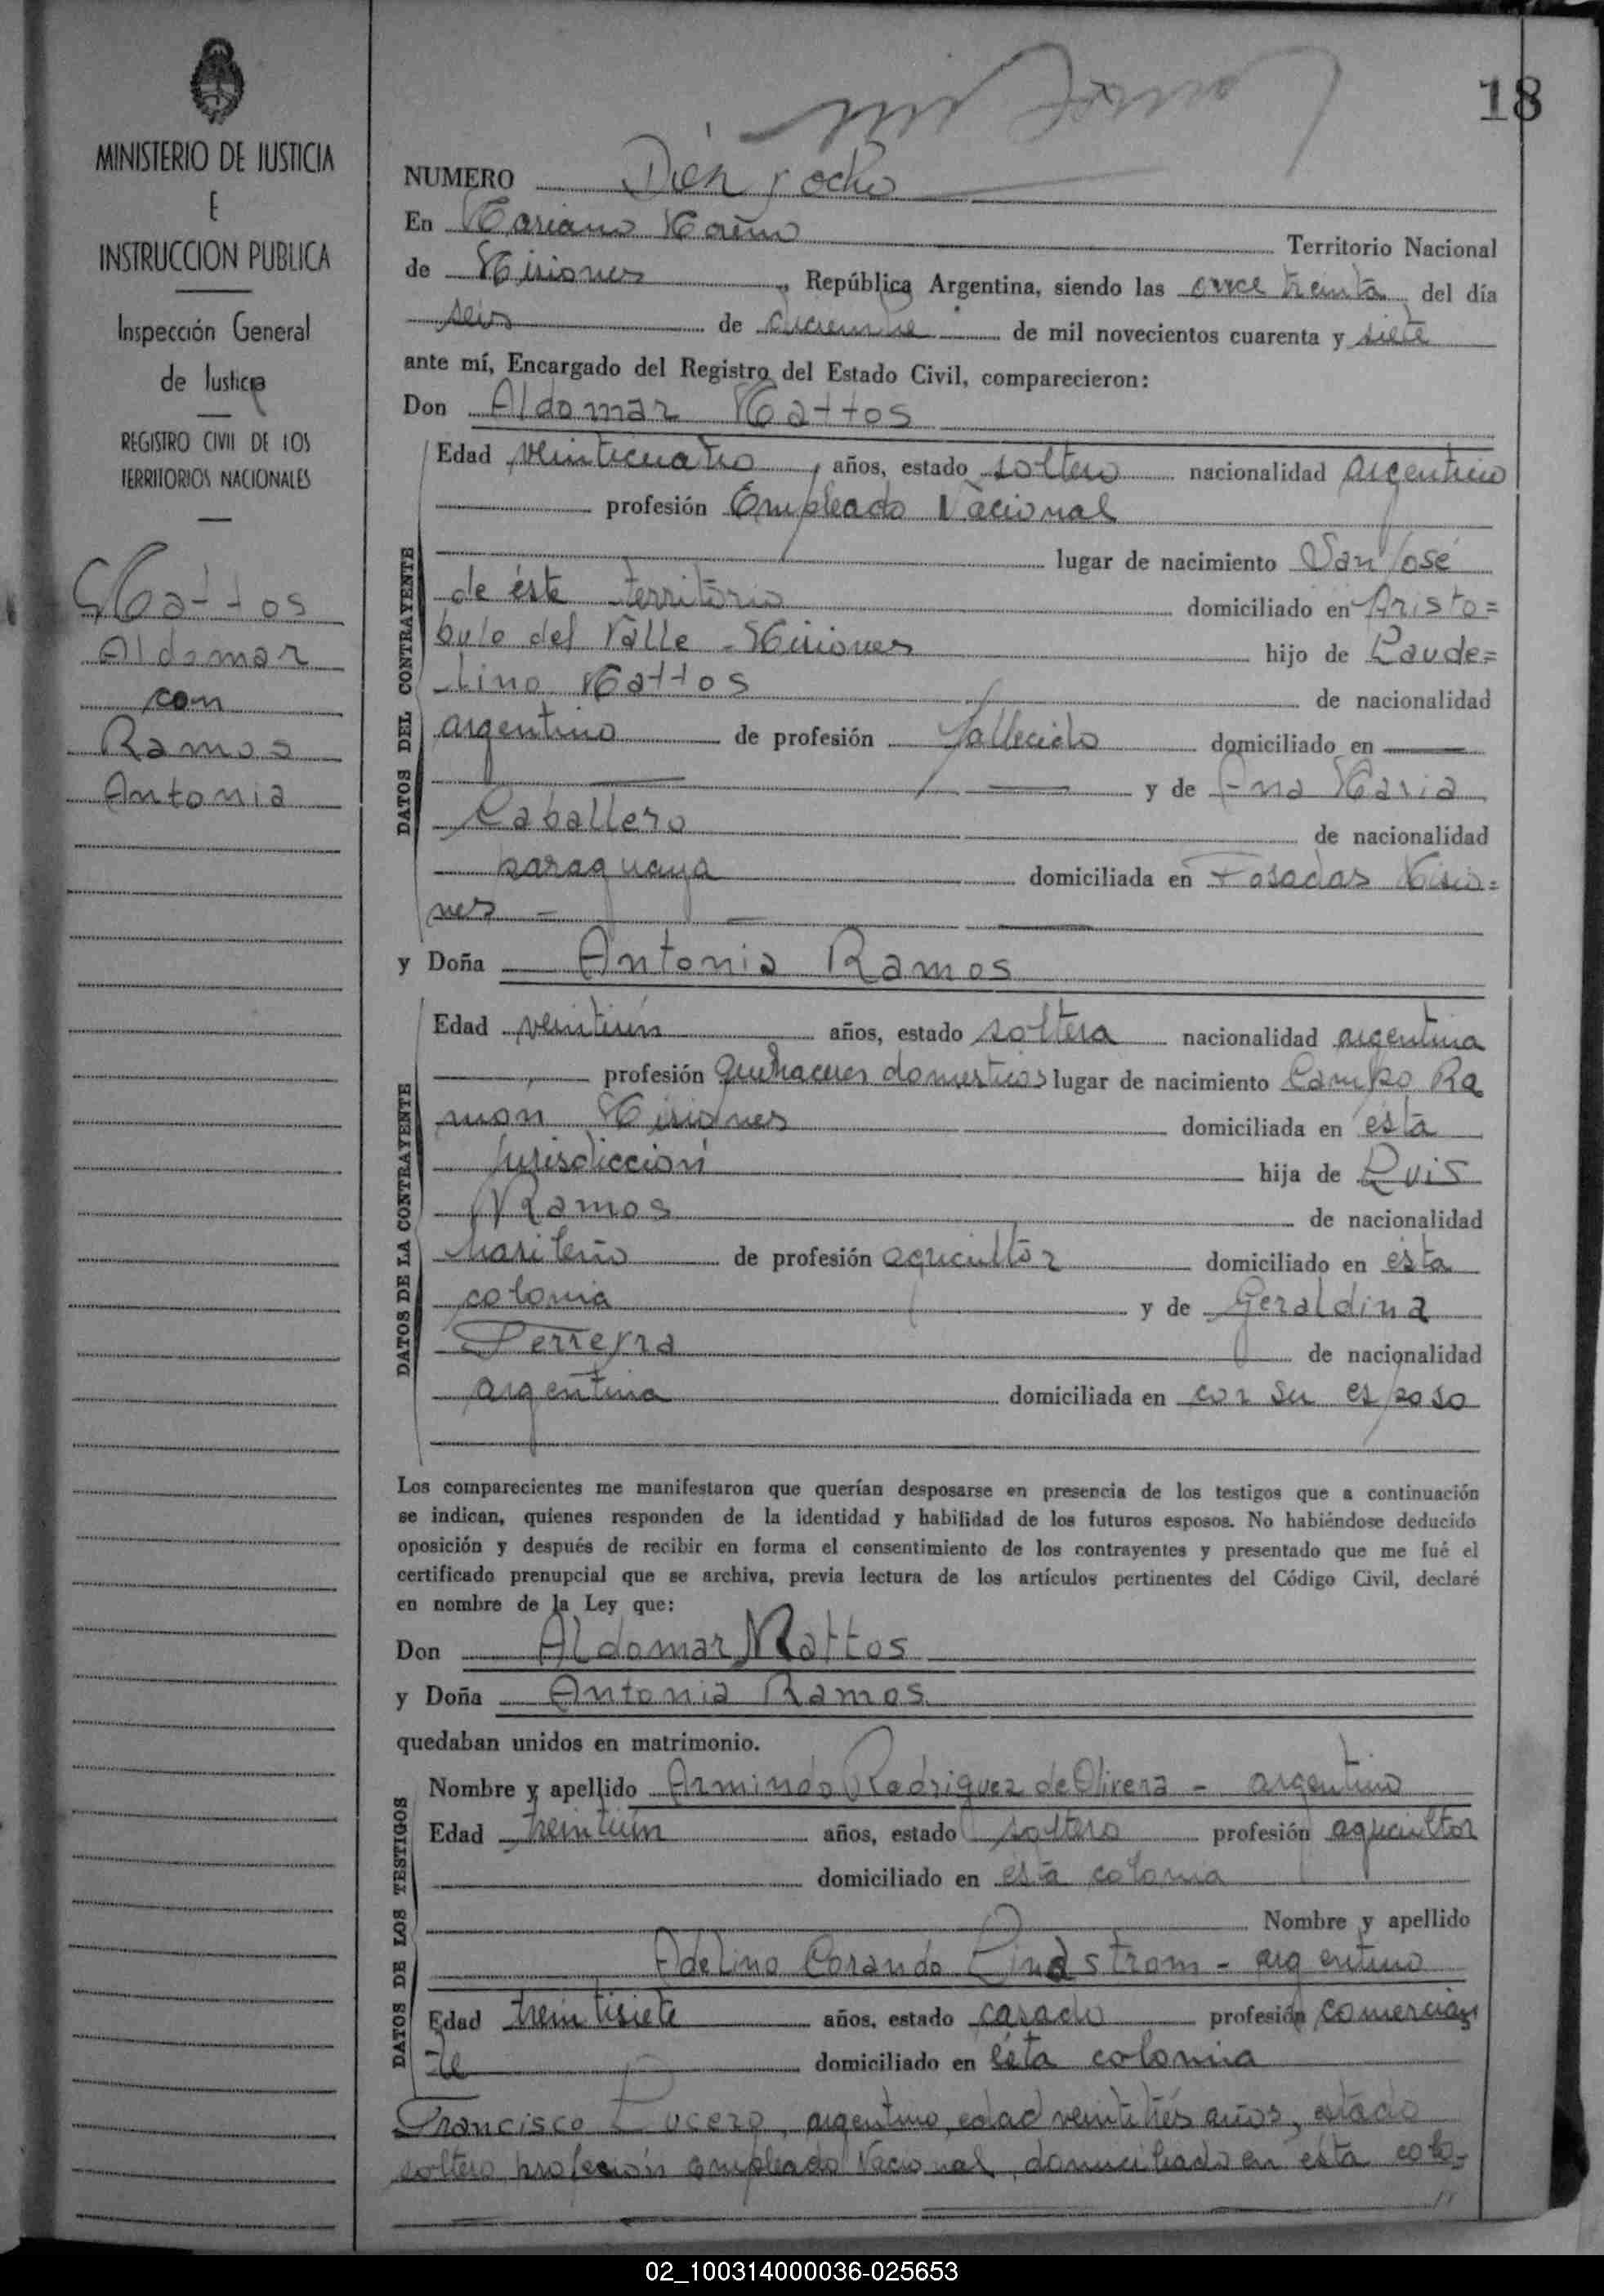 18
MINISTERIO DE JUSTICIA
E
INSTRUCCION PUBLICA
Inspección General
de Justicia
REGISTRO CIVIL DE LOS
TERRITORIOS NACIONALES
Mattos
Aldomar
con
Ramos
Antonia
NUMERO Diez y ocho
En Mariano Moreno Territorio Nacional
de Misiones, República Argentina, siendo las once treinta del día
seis de diciembre de mil novecientos cuarenta y siete
ante mí, Encargado del Registro del Estado Civil, comparecieron:
Don Aldomar Mattos
DATOS DEL CONTRAYENTE
Edad veinticuatro, años, estado soltero nacionalidad argentino
profesión Empleado Nacional
lugar de nacimiento San José
de éste territorio domiciliado en Aristo=
bulo del Valle - Misiones hijo de Laude=
lino Mattos de nacionalidad
argentino de profesión fallecido domiciliado en
y de Ana Maria
Caballero de nacionalidad
paraguaya domiciliada en Posadas Misio=
nes -
y Doña Antonia Ramos
DATOS DE LA CONTRAYENTE
Edad veintiún años, estado soltera nacionalidad argentina
profesión quehaceres domesticos lugar de nacimiento Campo Ra
món Misiones domiciliada en ésta
Jurisdicción hija de Luis
Ramos de nacionalidad
brasileño de profesión agricultor domiciliado en ésta
colonia y de Geraldina
Ferreyra de nacionalidad
argentina domiciliada en con su esposo
Los comparecientes me manifestaron que querían desposarse en presencia de los testigos que a continuación
se indican, quienes responden de la identidad y habilidad de los futuros esposos. No habiéndose deducido
oposición y después de recibir en forma el consentimiento de los contrayentes y presentado que me fué el
certificado prenupcial que se archiva, previa lectura de los artículos pertinentes del Código Civil, declaré
en nombre de la Ley que:
Don Aldomar Mattos
y Doña Antonia Ramos
quedaban unidos en matrimonio.
DATOS DE LOS TESTIGOS
Nombre y apellido Armindo Rodriguez de Olivera - argentino
Edad treintiún años, estado soltero profesión agricultor
domiciliado en ésta colonia
Nombre y apellido
Adelino Corando Lindstrom - argentino
Edad treintisiete años, estado casado profesión comercian
te domiciliado en ésta colonia
Francisco Lucero, argentino, edad veintitrés años, estado
soltero, profesión empleado Nacional, domiciliado en ésta colo-
//
02_100314000036-025653